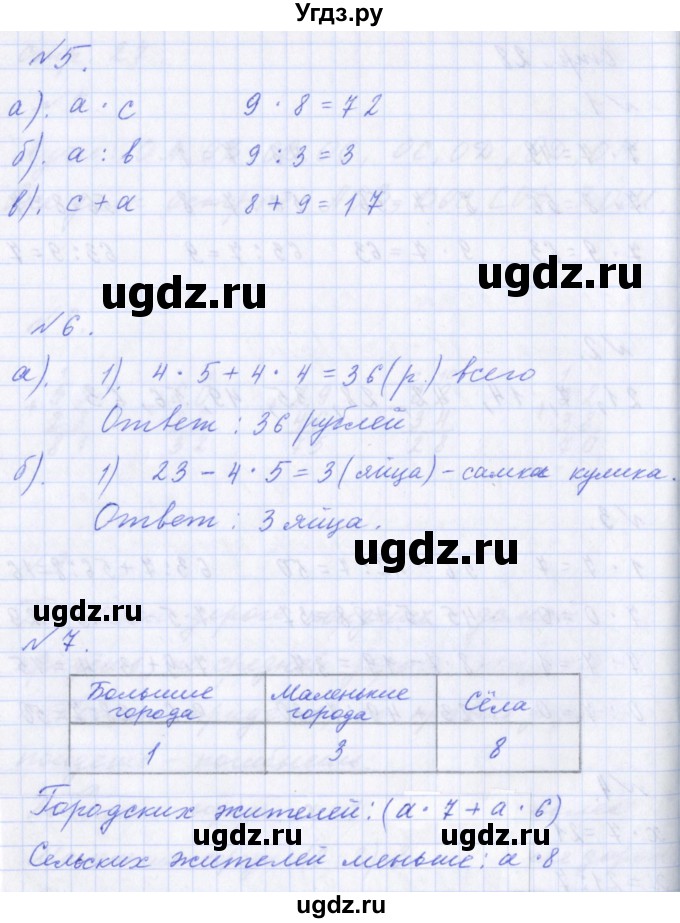 Угдз.ру
№5.
а). a · c 9 · 8 = 72
б). a : b 9 : 3 = 3
в). c + a 8 + 9 = 17
ugdz.ru ugdz.ru
№6.
а). 1). 4 · 5 + 4 · 4 = 36 (р.) всего
Ответ : 36 рублей
б). 1) 23 - 4 · 5 = 3 (яйца) - самка кулика.
Ответ : 3 яйца.
ugdz.ru
ugdz.ru
№7.
Большие города Маленькие города Сёла
1 3 8
Городских жителей: (a · 7 + a · 6)
ugdz.ru ugdz.ru
Сельских жителей меньше: a · 8
ugdz.ru